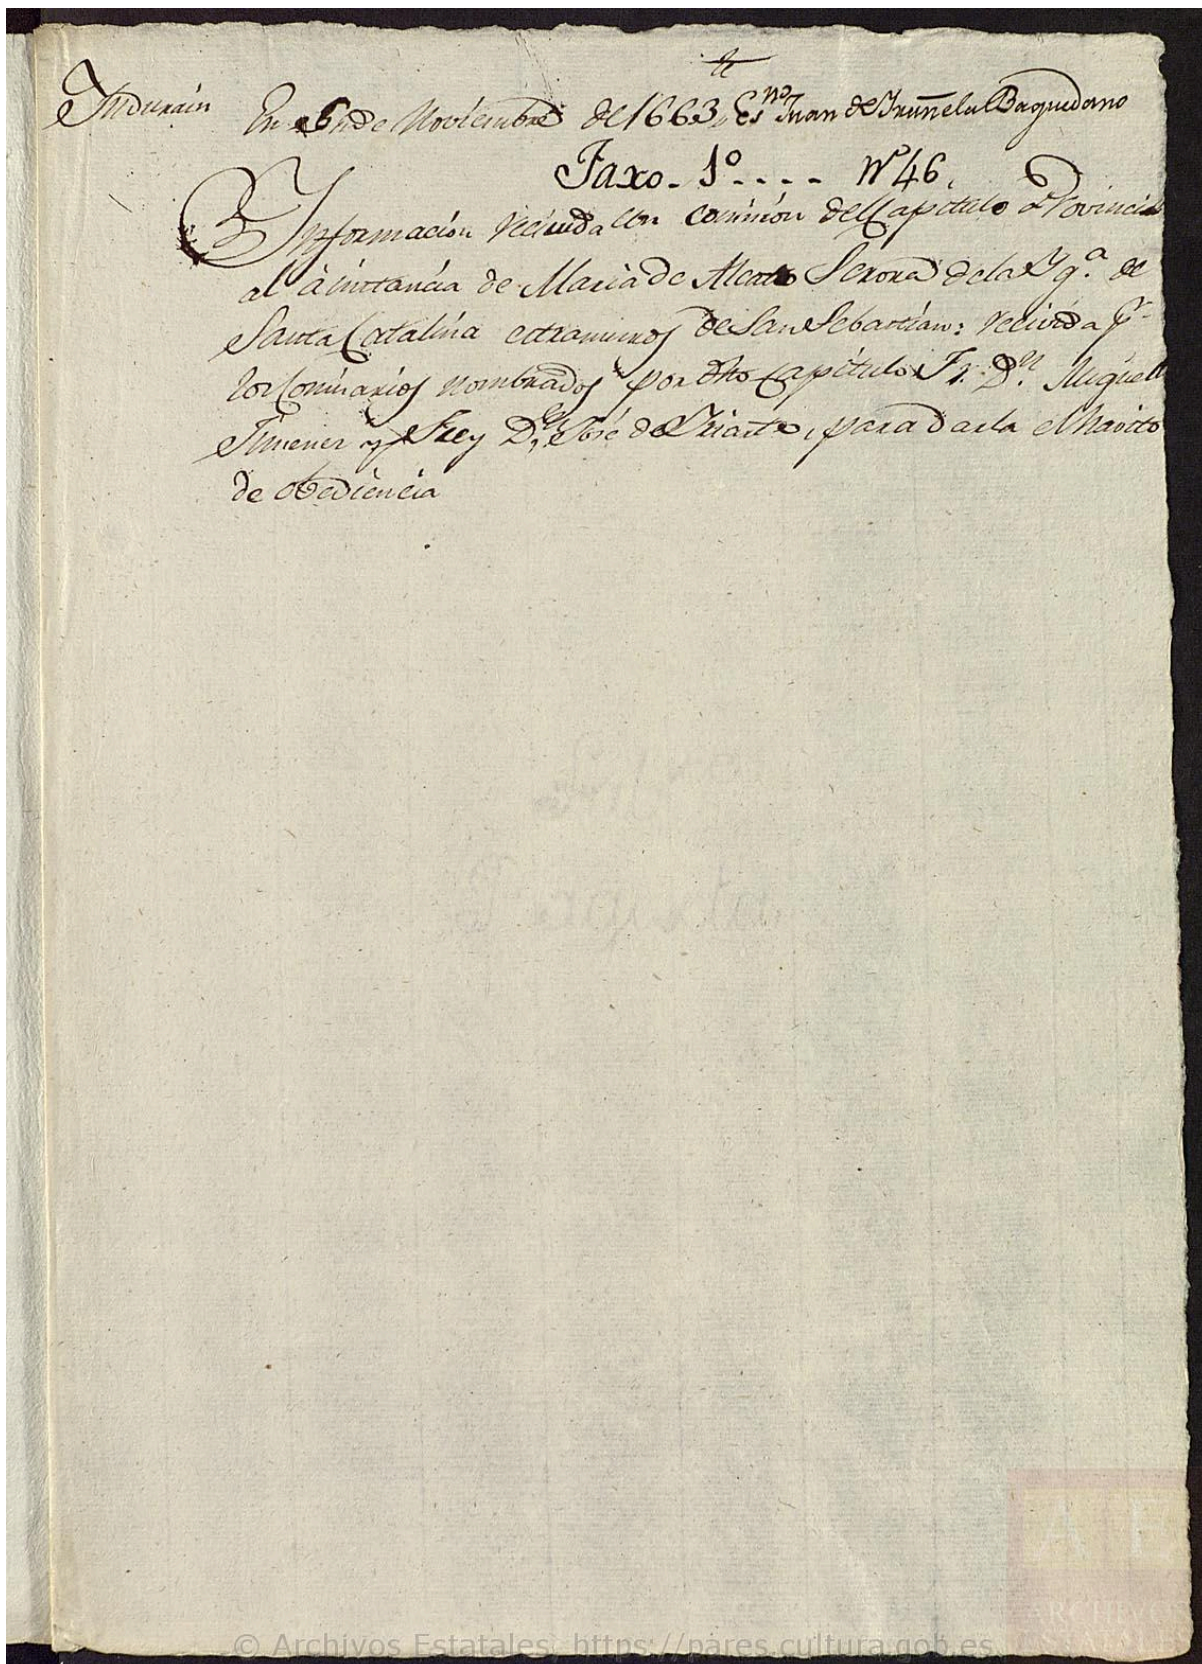 Indurain
En 6 de Noviembre de 1663, Esno Juan de Irunñela Baquedano
Faxo - 1º - - - - Nº 46.
Informacion reciuida con comision del Capitulo Provinci
al â instancia de Maria de Serora de la Ygª de
Santa Catalina extramuros de San Sebastian: recivida pr
los Comisarios nombrados por dho Capitulo Fr. Dn Miguel
Jimenez y Frey Dn José de Iriarte, para darla el havito
de obediencia
© Archivos Estatales, https://pares.cultura.gob.es